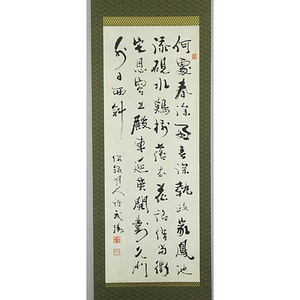 何處春深好春深執政家鳳池
添硯水鷄樹落衣花詔借當衢
宅恩容上殿車延英開對久門
與日西斜